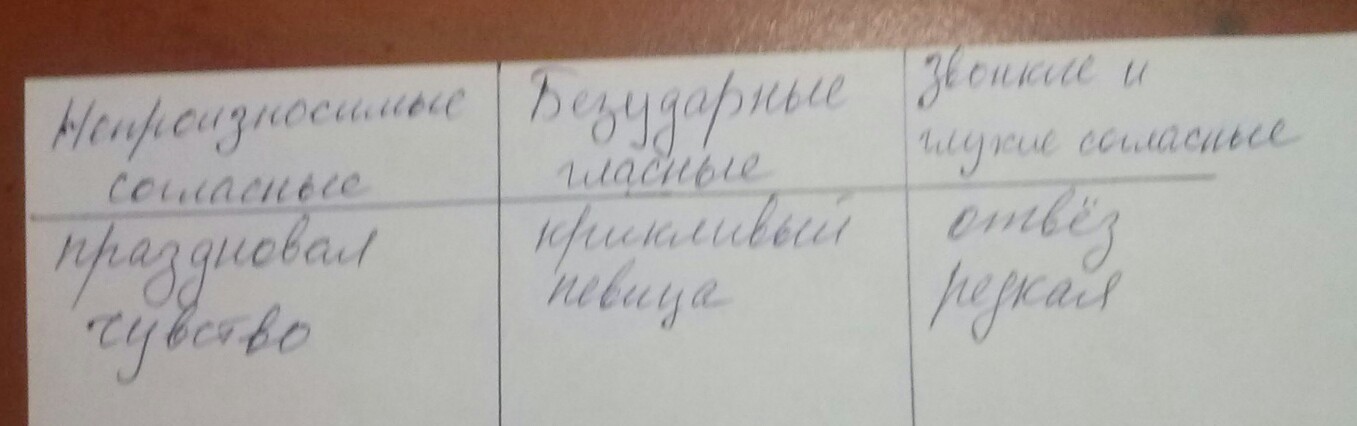 Непроизносимые
согласные
праздновал
чувство
Безударные
гласные
крикливый
певица
Звонкие и
глухие согласные
отвёз
редкая